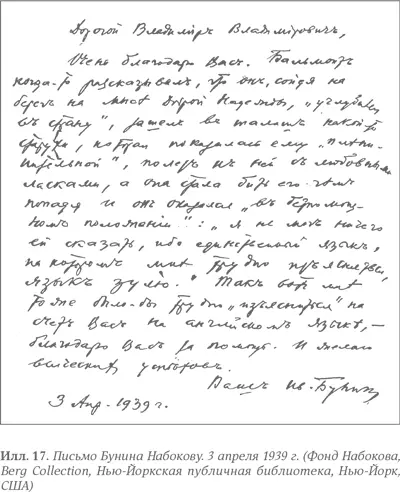 Дорогой Владимиръ Владимировичъ,
Очень благодарю Васъ. Бальмонтъ
когда-то разсказывалъ, что онъ, сойдя на
берегъ на мысѣ Доброй Надежды, „углубился
въ страну", зашелъ въ шалашъ какой-то
старухи, которая показалась ему „плѣни-
тельной", полѣзъ къ ней съ любовными
ласками, а она стала бить его чѣмъ
попадя и онъ оказался „въ безпомощ-
номъ положеніи": „я не могъ ничего
ей сказать, ибо единственный языкъ,
на которомъ мнѣ трудно изъясняться,
языкъ зулю." Такъ вотъ мнѣ
тоже было-бы трудно „изъясниться" на
счетъ Васъ на англійскомъ языкѣ, —
благодарю Васъ за помощь. И желаю
всяческихъ успѣховъ.
Вашъ Ив. Бунинъ
3 Апр. 1939 г.
Илл. 17. Письмо Бунина Набокову. 3 апреля 1939 г. (Фонд Набокова,
Berg Collection, Нью-Йоркская публичная библиотека, Нью-Йорк,
США)